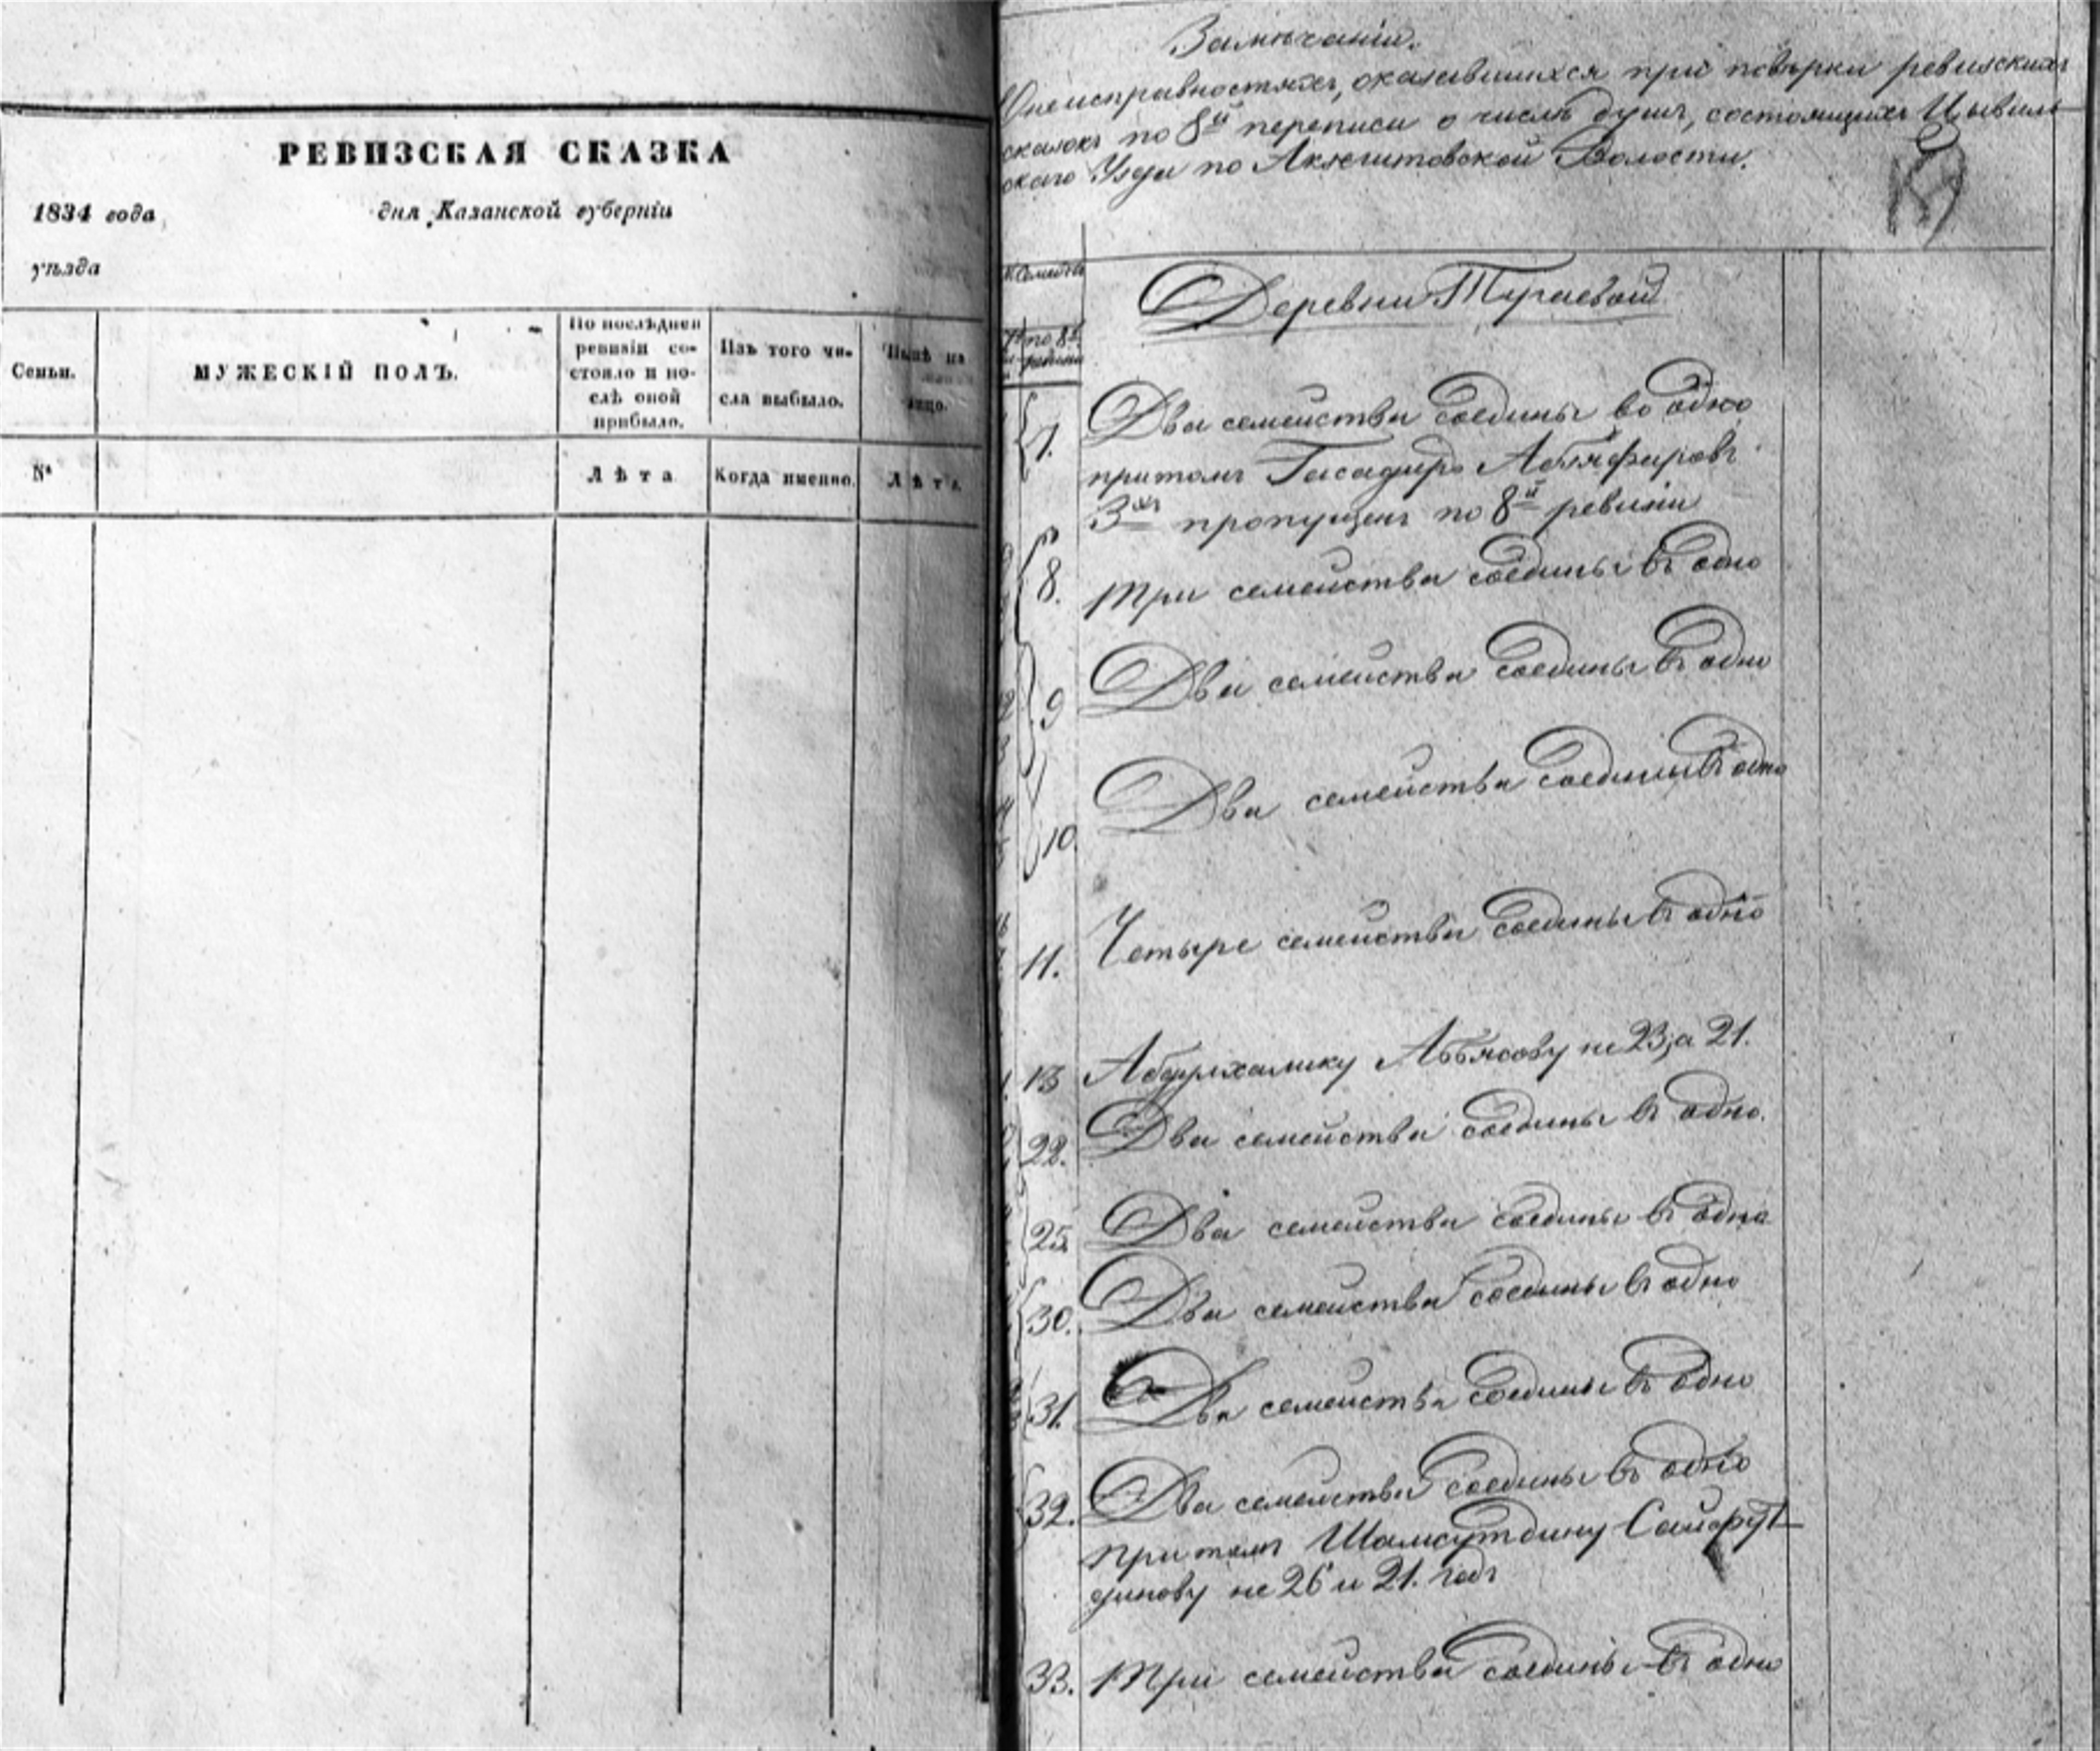 РЕВИЗСКАЯ СКАЗКА
1834 года дня Казанской губернiи
уѣзда
Семьи.
МУЖЕСКIЙ ПОЛЪ.
По послѣдней
ревизiи со-
стояло и по-
слѣ оной
прибыло.
Изъ того чи-
сла выбыло.
Нынѣ на
лицо.
№
Лѣта
Когда именно.
Лѣта
Замѣчанiи.
О неисправностяхъ, оказавшихся при повѣрки ревизскихъ
сказокъ по 8й переписи о числѣ душъ, состоящихъ Цывиль
скаго Уезда по Акзегитовской Волости.
Деревни Тугаевой
по 8й
7. Два семейства соедины во одно
притомъ Абдялфаровъ
3хъ пропущенъ по 8й ревизiи
8. Три семейства соедины въ одно
9 Два семейства соедины въ одно
10 Два семейства соедины въ одно
11. Четыре семейства соедины въ одно
13 Абдулхалику Аббясову не 23, а 21.
22. Два семейства соедины въ одно.
25 Два семейства соедины въ одно
30. Два семейства соедины въ одно
31. Два семейства соедины въ одно
32. Два семейства соедины въ одно
притомъ Шамсутдину Сайфут
динову не 26 и 21. годъ
33. Три семейства соедины въ одно